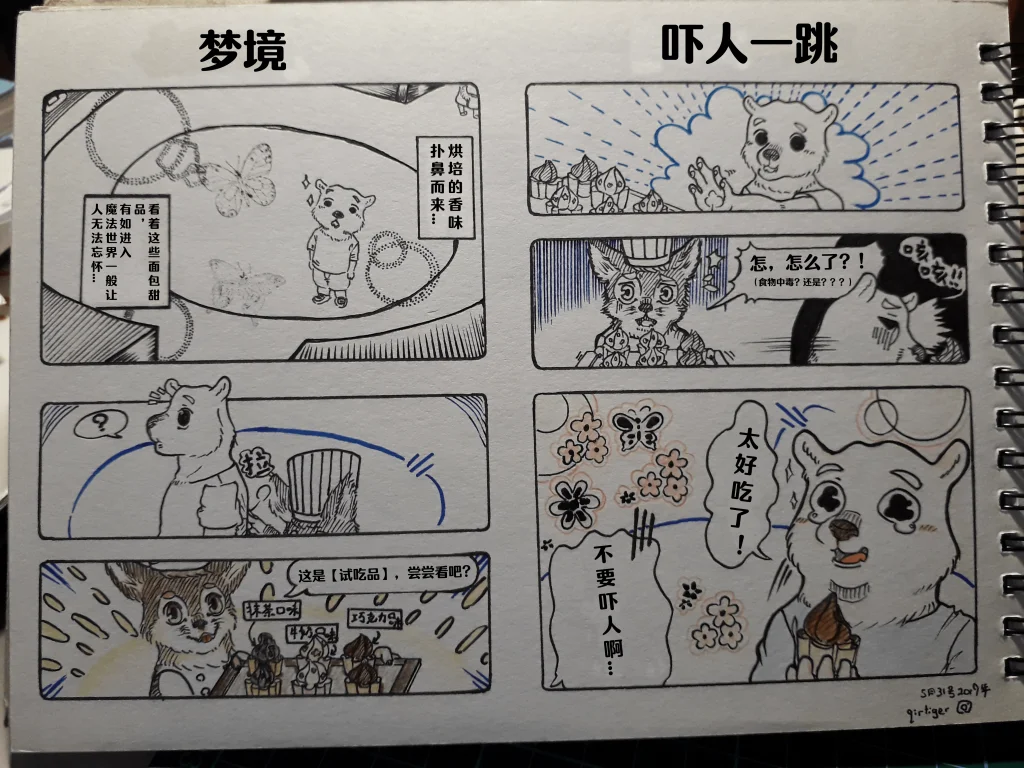 梦境
烘培的香味
扑鼻而来…
看着这些面包甜
品，
有如进入
魔法世界一般让
人无法忘怀…
?
拉
这是【试吃品】，尝尝看吧？
抹茶口味
牛奶
巧克力口味
吓人一跳
怎，怎么了？！
（食物中毒？还是？？？）
太好吃了！
不要吓人啊…
5月31号2019年
girtiger